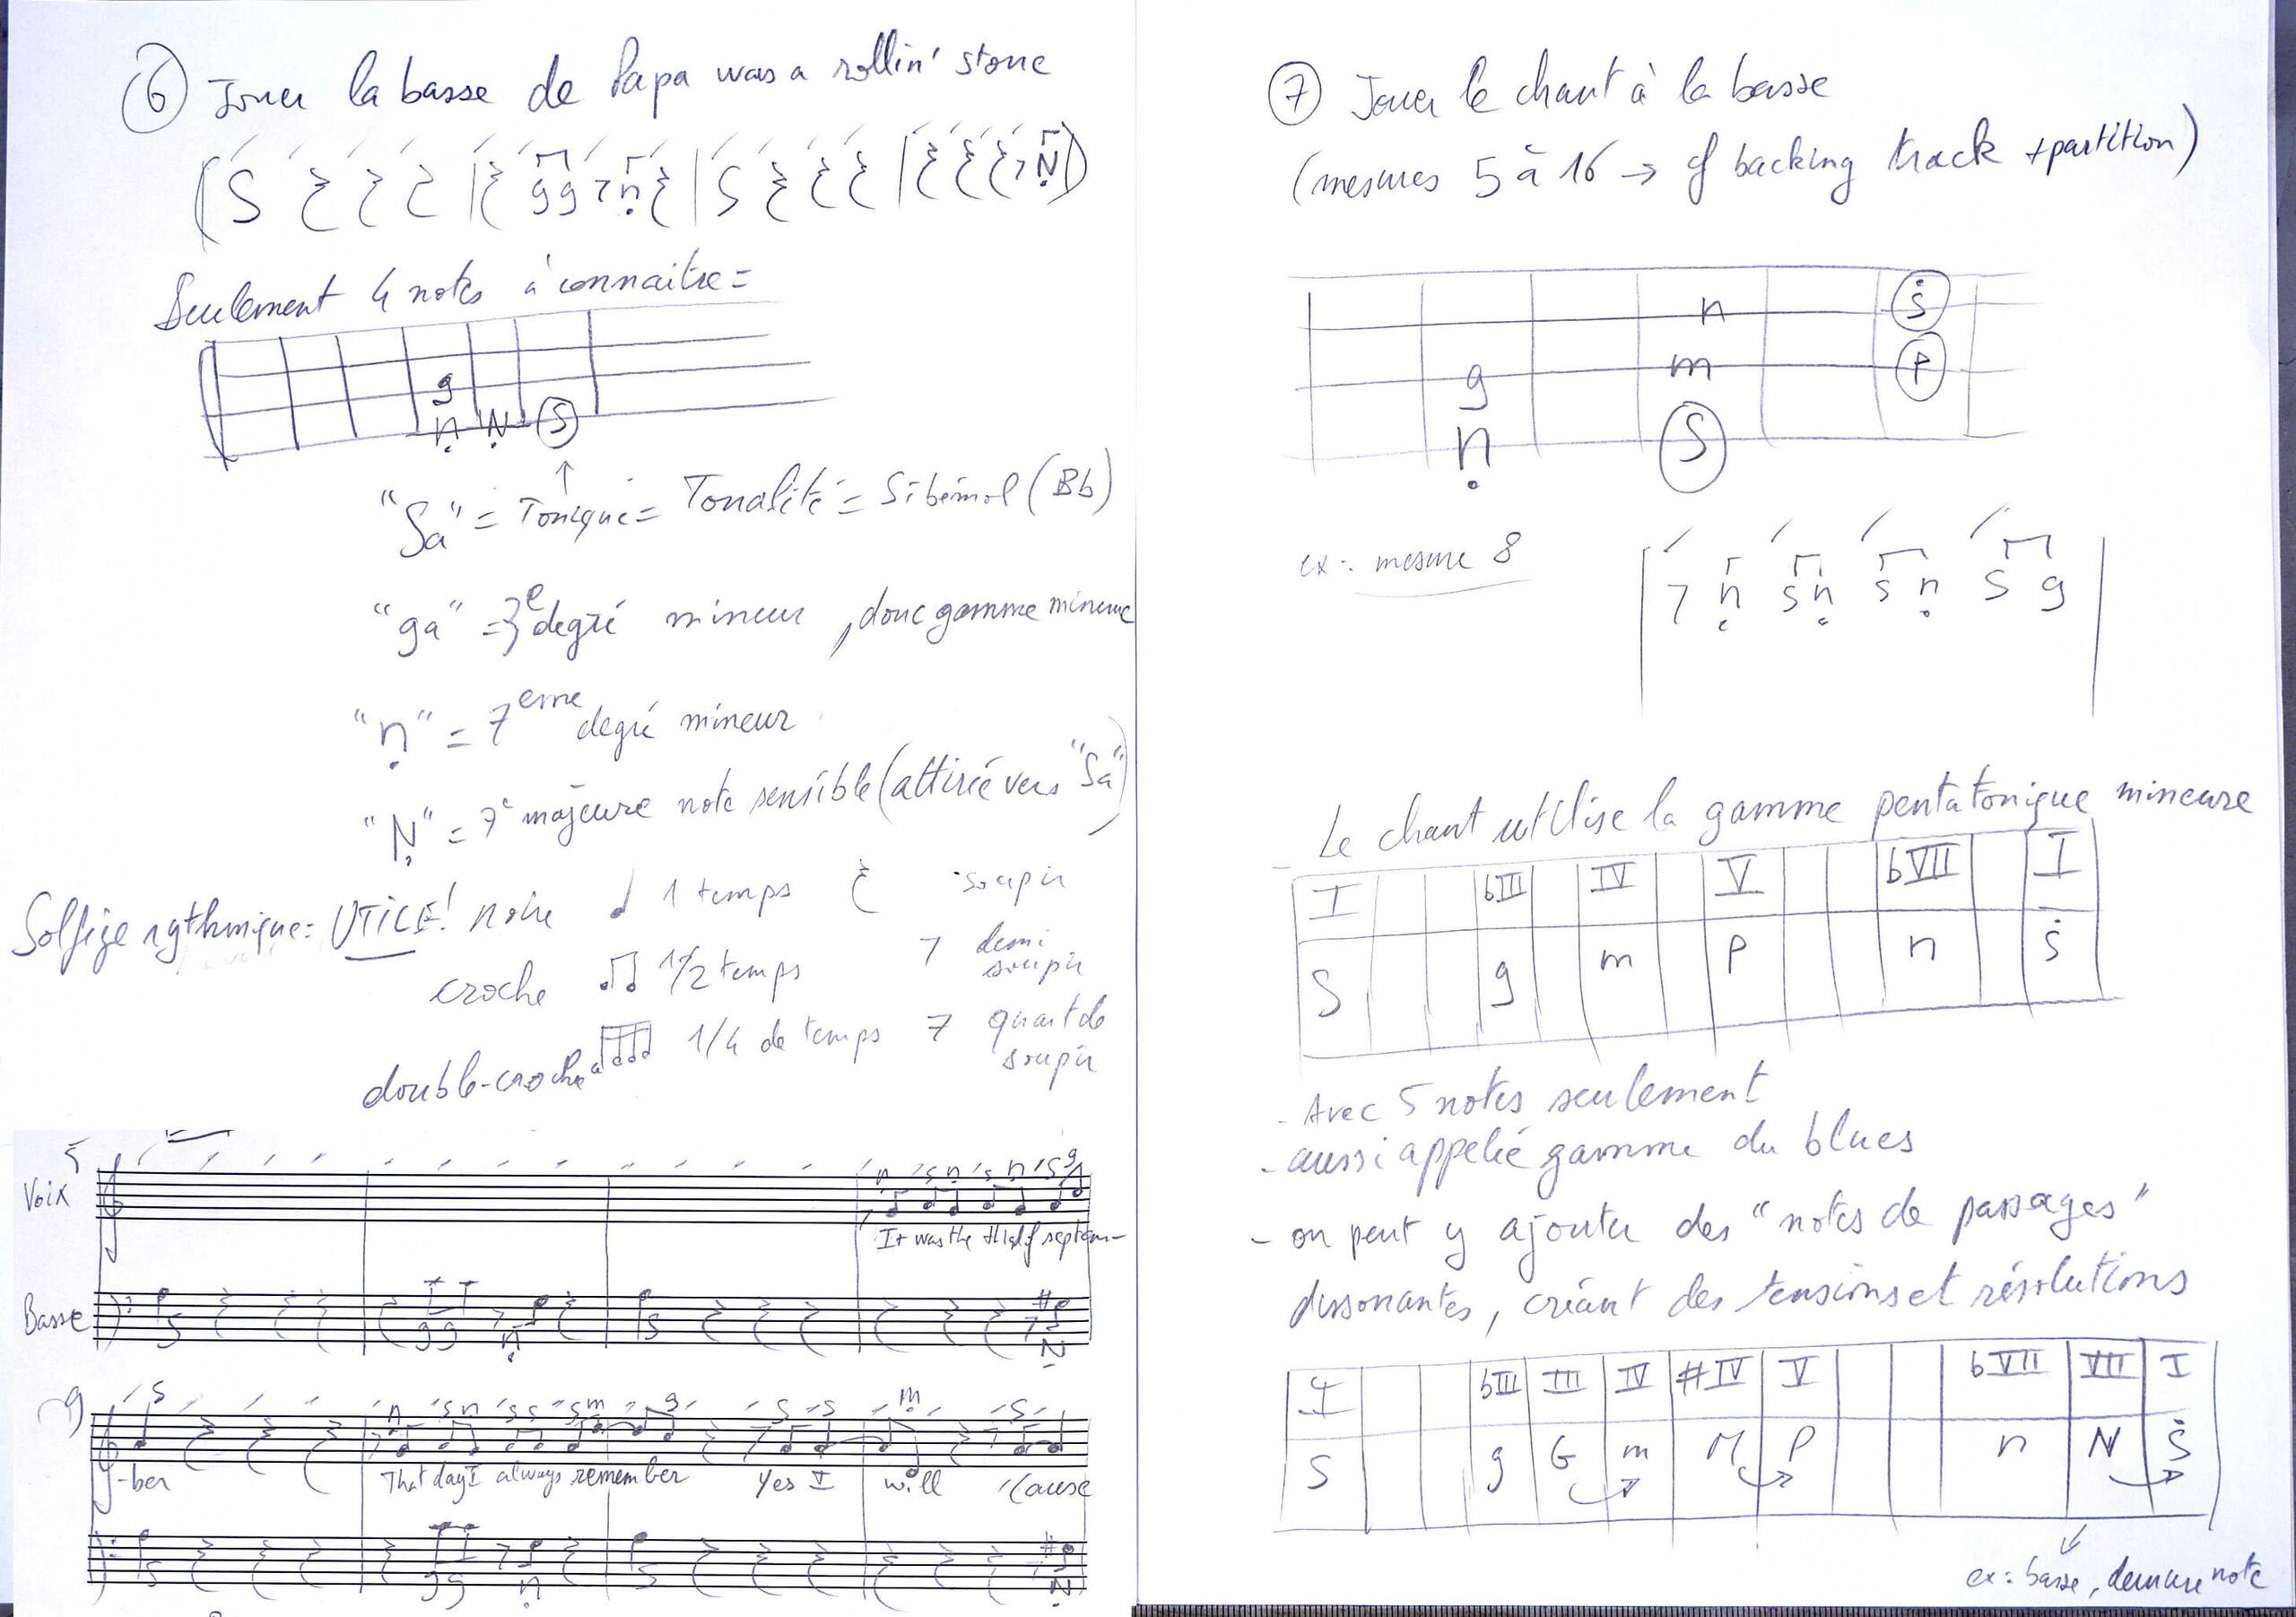 ⑥ Jouer la basse de Papa was a rollin' stone
( S 𝄽 𝄽 𝄽 | 𝄽 g g 7 ṇ 𝄽 | S 𝄽 𝄽 𝄽 | 𝄽 𝄽 𝄽 7 Ṇ )
Seulement 4 notes à connaitre =
g
ṇ Ṇ S
↑
"Sa" = Tonique = Tonalité = Si bémol (Bb)
"ga" = 3e degré mineur, donc gamme mineure
"ṇ" = 7eme degré mineur
"Ṇ" = 7e majeure note sensible (attirée vers "Sa")
Solfège rythmique: UTILE! noire ♩ 1 temps 𝄽 soupir
croche ♫ 1/2 temps 7 demi soupir
double-croche 1/4 de temps 7 quart de soupir
5
Voix
n s n s n s g
It was the third of septem-
Basse
S g g ṇ S Ṇ
9
s n s n s s s m g s s m s
-ber That day I always remember Yes I will 'Cause
S g g ṇ S Ṇ
⑦ Jouer le chant à la basse
(mesures 5 à 16 → cf backing track + partition)
n ṡ
g m P
ṇ S
ex: mesure 8 | 7 ṇ s ṇ s ṇ s g |
- Le chant utilise la gamme pentatonique mineure
I bIII IV V bVII I
S g m P n ṡ
- Avec 5 notes seulement
- aussi appelée gamme du blues
- on peut y ajouter des "notes de passages"
dissonantes, créant des tensions et résolutions
I bIII III IV #IV V bVII VII I
S g G m M P n N Ṡ
ex: basse, dernière note